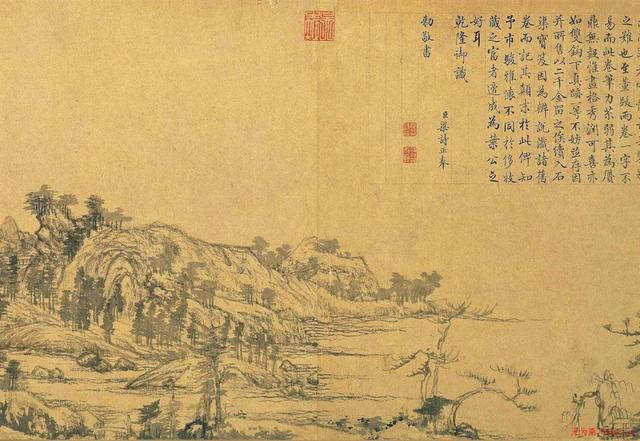 之難也至董跋兩卷一字不
易而此卷筆力茶弱其為贗
鼎無疑惟畫格秀潤可喜亦
如雙鈎下真跡一等不妨並存因
并所售以二千金留之俟續入石
渠寶笈因為辨說識諸舊
卷而記其顛末於此俾知
予市駿雅懷不同於侈收
藏之富者適成為葉公之
好耳
乾隆御識
臣梁詩正奉
勅敬書